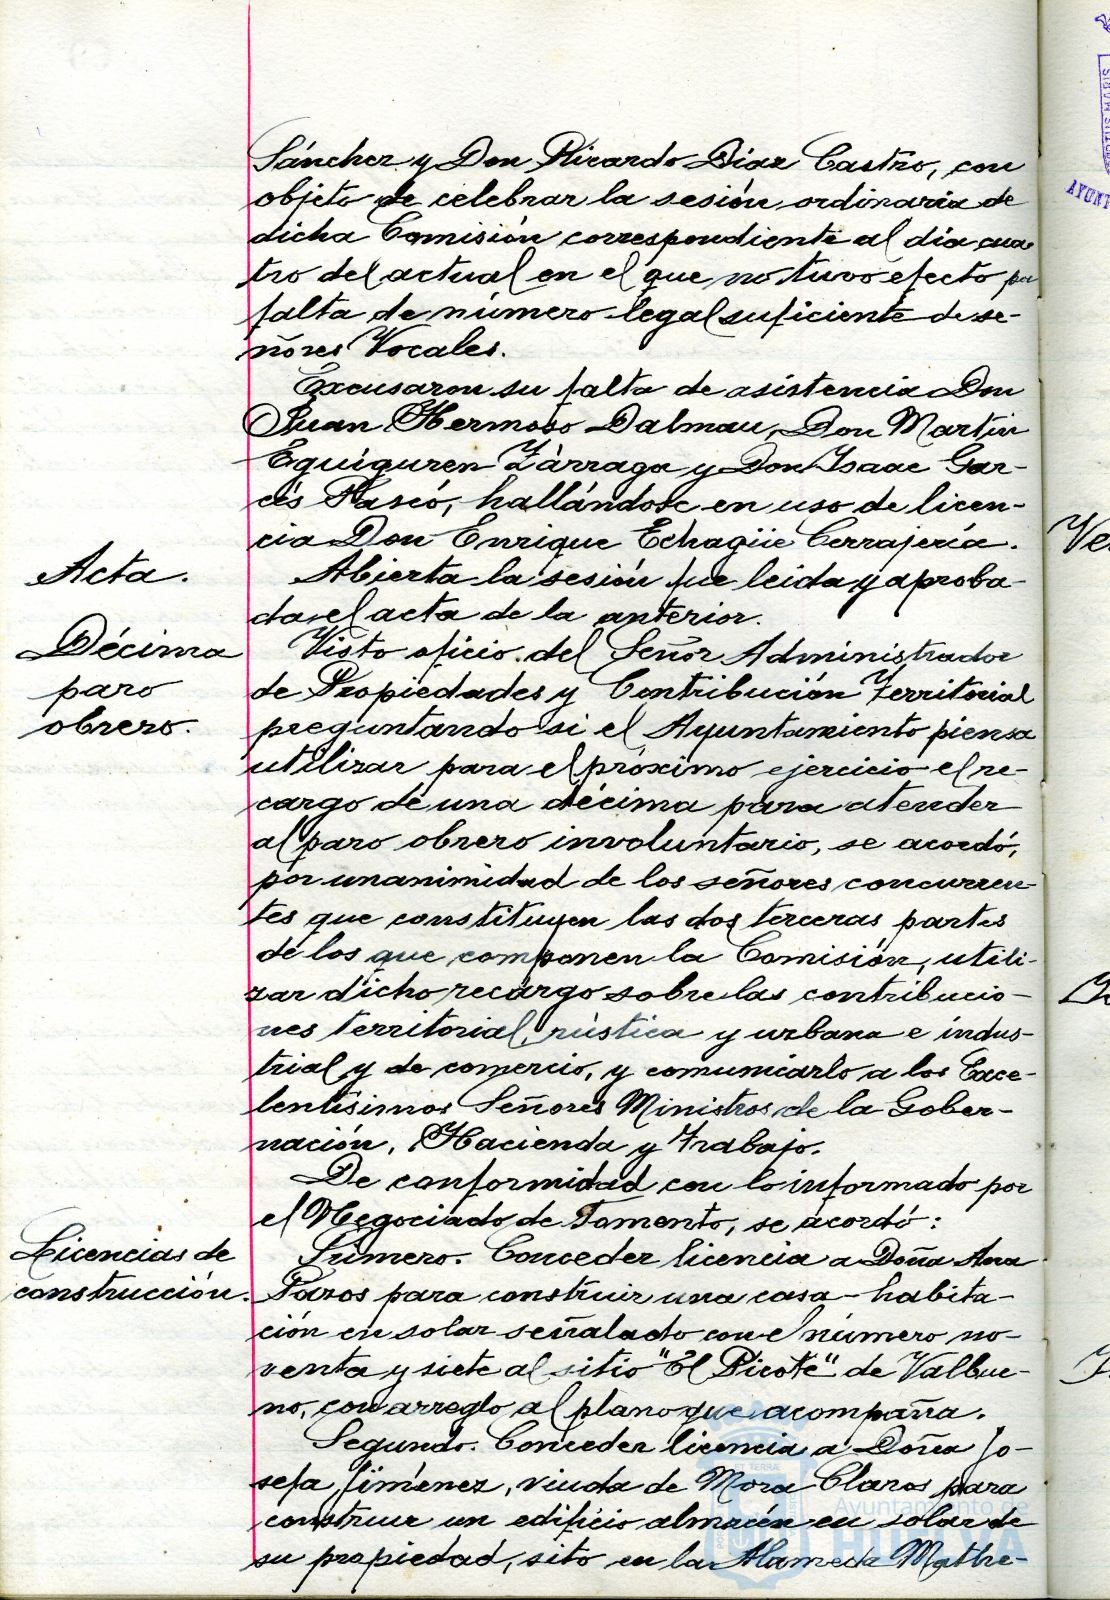 Sánchez y Don Ricardo Díaz Castro, con
objeto de celebrar la sesión ordinaria de
dicha Comisión correspondiente al día cua-
tro del actual en el que no tuvo efecto por
falta de número legal suficiente de se-
ñores Vocales.
Excusaron su falta de asistencia Don
Juan Hermoso Dalmau, Don Martín
Eguiguren Zárraga y Don Isaac Gar-
cés Rasco, hallándose en uso de licen-
cia Don Enrique Echagüe Cerrajería.
Acta.
Abierta la sesión fue leida y aproba-
da el acta de la anterior.
Décima
paro
obrero.
Visto oficio del Señor Administrador
de Propiedades y Contribución Territorial
preguntando si el Ayuntamiento piensa
utilizar para el próximo ejercicio el re-
cargo de una décima para atender
al paro obrero involuntario, se acordó,
por unanimidad de los señores concurren-
tes que constituyen las dos terceras partes
de los que componen la Comisión, utili-
zar dicho recargo sobre las contribucio-
nes territorial, rústica y urbana e indus-
trial y de comercio, y comunicarlo a los Exce-
lentísimos Señores Ministros de la Gober-
nación, Hacienda y Trabajo.
De conformidad con lo informado por
el Negociado de Fomento, se acordó:
Licencias de
construcción.
Primero. Conceder licencia a Doña Ana
Pazos para construir una casa-habita-
ción en solar señalado con el número no-
venta y siete al sitio "El Picote" de Valbue-
no, con arreglo al plano que acompaña.
Segundo. Conceder licencia a Doña Jo-
sefa Jiménez, viuda de Mora Claros para
construir un edificio almacén en solar de
su propiedad, sito en la Alameda
Ayuntamiento de
HUELVA